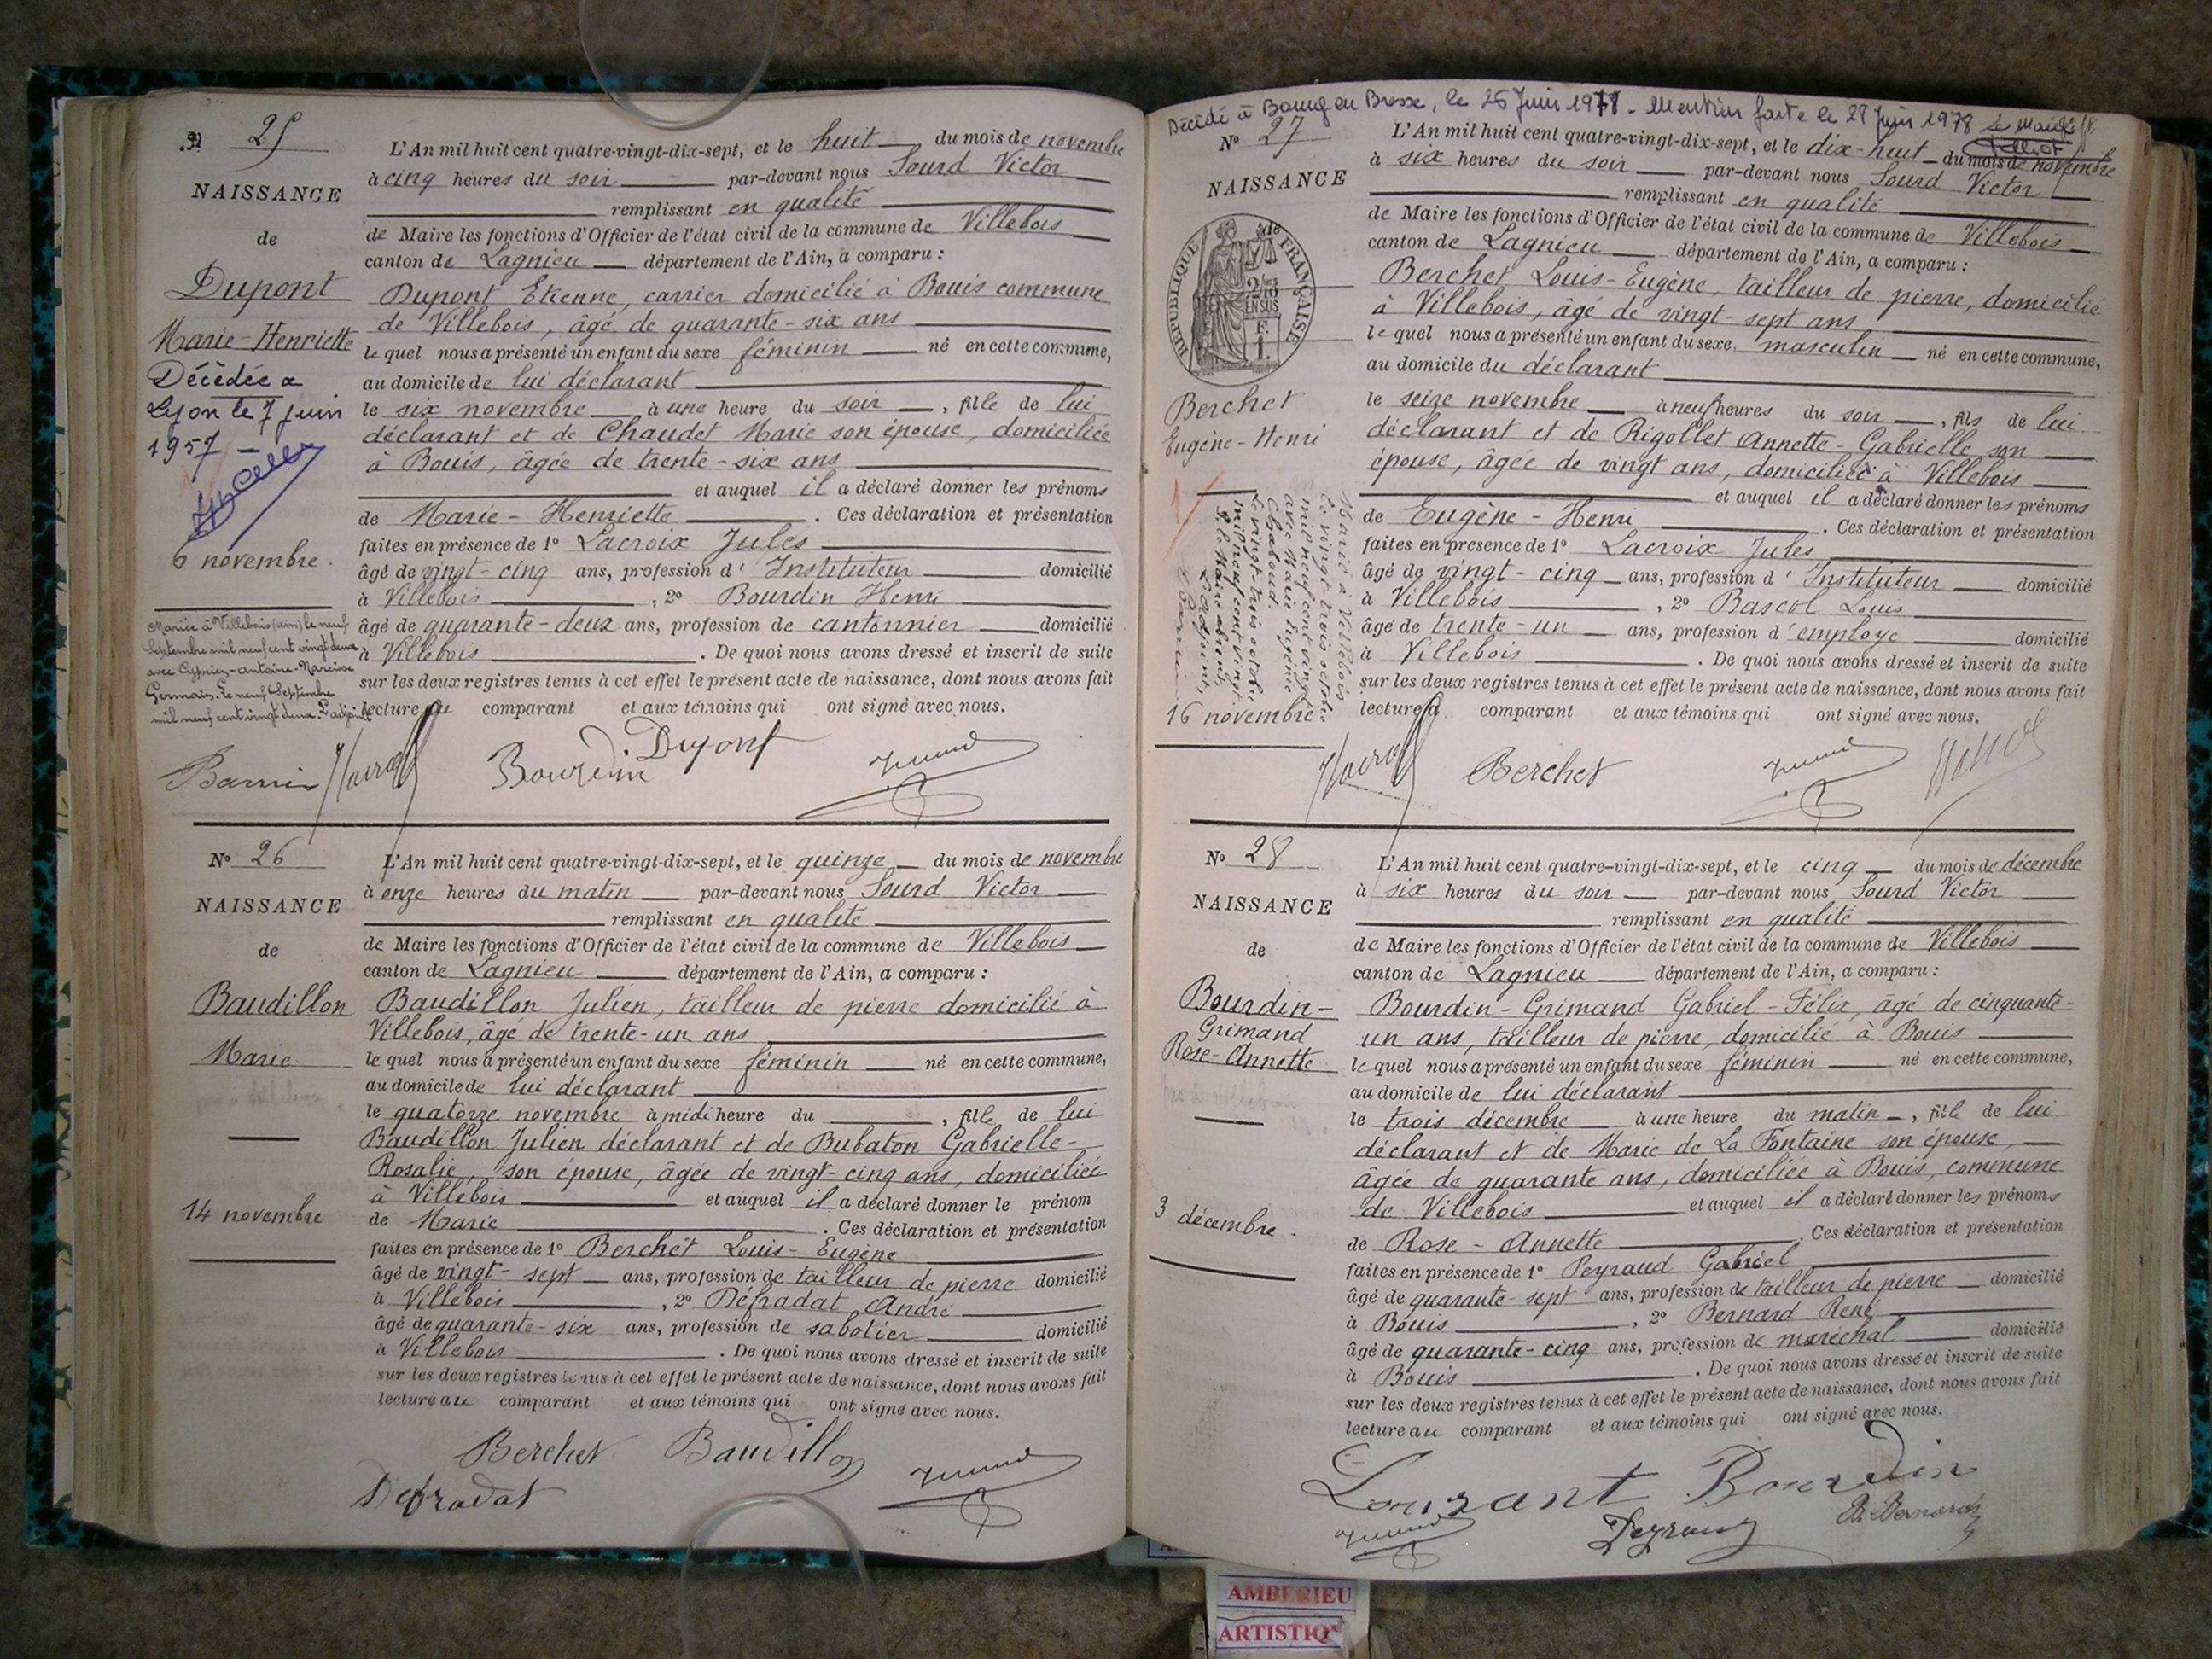 N° 25
NAISSANCE
de
Dupont
Marie-Henriette
Décédée a
Lyon le 7 juin
1957 -
6 novembre.
Mariée à Villebois (Ain) le neuf
Septembre mil neuf cent vingt deux
avec Cyprien-Antoine-Narcisse
Germain. Le neuf Septembre
mil neuf cent vingt deux. L'adjoint
L'An mil huit cent quatre-vingt-dix-sept, et le huit du mois de novembre
à cinq heures du soir par-devant nous Sourd Victor
remplissant en qualité
de Maire les fonctions d'Officier de l'état civil de la commune de Villebois
canton de Lagnieu département de l'Ain, a comparu :
Dupont Etienne, carrier domicilié à Bouis commune
de Villebois, âgé de quarante-six ans
le quel nous a présenté un enfant du sexe féminin né en cette commune,
au domicile de lui déclarant
le six novembre à une heure du soir, fille de lui
déclarant et de Chaudet Marie son épouse, domiciliée
à Bouis, âgée de trente-six ans
et auquel il a déclaré donner les prénoms
de Marie-Henriette. Ces déclaration et présentation
faites en présence de 1° Lacroix Jules
âgé de vingt-cinq ans, profession d'Instituteur domicilié
à Villebois, 2° Bourdin Henri
âgé de quarante-deux ans, profession de cantonnier domicilié
à Villebois. De quoi nous avons dressé et inscrit de suite
sur les deux registres tenus à cet effet le présent acte de naissance, dont nous avons fait
lecture au comparant et aux témoins qui ont signé avec nous.
Barrin Bourdin Dupont
N° 26
NAISSANCE
de
Baudillon
Marie
14 novembre
L'An mil huit cent quatre-vingt-dix-sept, et le quinze du mois de novembre
à onze heures du matin par-devant nous Sourd Victor
remplissant en qualité
de Maire les fonctions d'Officier de l'état civil de la commune de Villebois
canton de Lagnieu département de l'Ain, a comparu :
Baudillon Julien, tailleur de pierre domicilié à
Villebois, âgé de trente-un ans
le quel nous a présenté un enfant du sexe féminin né en cette commune,
au domicile de lui déclarant
le quatorze novembre à midi heure du , fille de lui
Baudillon Julien déclarant et de Bubaton Gabrielle-
Rosalie, son épouse, âgée de vingt-cinq ans, domiciliée
à Villebois et auquel il a déclaré donner le prénom
de Marie. Ces déclaration et présentation
faites en présence de 1° Berchet Louis-Eugène
âgé de vingt-sept ans, profession de tailleur de pierre domicilié
à Villebois, 2° Défradat André
âgé de quarante-six ans, profession de sabotier domicilié
à Villebois. De quoi nous avons dressé et inscrit de suite
sur les deux registres tenus à cet effet le présent acte de naissance, dont nous avons fait
lecture au comparant et aux témoins qui ont signé avec nous.
Berchet Baudillon
Defradat
Décédé à Bourg en Bresse, le 26 Juin 1978 - Mention faite le 28 Juin 1978
N° 27
NAISSANCE
de
RÉPUBLIQUE FRANÇAISE
2/10
EN SUS
F.
1.
Berchet
Eugène-Henri
Marié à Villebois
le vingt-trois octobre
mil neuf cent vingt
avec Marie Eugénie
Chaboud.
Le vingt-trois octobre
mil neuf cent vingt.
P. le Maire absent,
L'Adjoint,
16 novembre
L'An mil huit cent quatre-vingt-dix-sept, et le dix-huit du mois de novembre
à six heures du soir par-devant nous Sourd Victor
remplissant en qualité
de Maire les fonctions d'Officier de l'état civil de la commune de Villebois
canton de Lagnieu département de l'Ain, a comparu :
Berchet Louis-Eugène, tailleur de pierre, domicilié
à Villebois, âgé de vingt-sept ans
le quel nous a présenté un enfant du sexe masculin né en cette commune,
au domicile du déclarant
le seize novembre à neuf heures du soir, fils de lui
déclarant et de Rigollet Annette-Gabrielle son
épouse, âgée de vingt ans, domiciliée à Villebois
et auquel il a déclaré donner les prénoms
de Eugène-Henri. Ces déclaration et présentation
faites en présence de 1° Lacroix Jules
âgé de vingt-cinq ans, profession d'Instituteur domicilié
à Villebois, 2° Bascol Louis
âgé de trente-un ans, profession d'employé domicilié
à Villebois. De quoi nous avons dressé et inscrit de suite
sur les deux registres tenus à cet effet le présent acte de naissance, dont nous avons fait
lecture au comparant et aux témoins qui ont signé avec nous.
Berchet
N° 28
NAISSANCE
de
Bourdin-
Grimand
Rose-Annette
3 décembre.
L'An mil huit cent quatre-vingt-dix-sept, et le cinq du mois de décembre
à six heures du soir par-devant nous Sourd Victor
remplissant en qualité
de Maire les fonctions d'Officier de l'état civil de la commune de Villebois
canton de Lagnieu département de l'Ain, a comparu :
Bourdin-Grimand Gabriel-Félix, âgé de cinquante-
un ans, tailleur de pierre, domicilié à Bouis
le quel nous a présenté un enfant du sexe féminin né en cette commune,
au domicile de lui déclarant
le trois décembre à une heure du matin, fille de lui
déclarant et de Marie de La Fontaine son épouse,
âgée de quarante ans, domiciliée à Bouis, commune
de Villebois et auquel il a déclaré donner les prénoms
de Rose-Annette. Ces déclaration et présentation
faites en présence de 1° Peyraud Gabriel
âgé de quarante-sept ans, profession de tailleur de pierre domicilié
à Bouis, 2° Bernard René
âgé de quarante-cinq ans, profession de maréchal domicilié
à Bouis. De quoi nous avons dressé et inscrit de suite
sur les deux registres tenus à cet effet le présent acte de naissance, dont nous avons fait
lecture au comparant et aux témoins qui ont signé avec nous.
Bourdin
Peyraud R. Bernard
AMBERIEU
ARTISTIQ